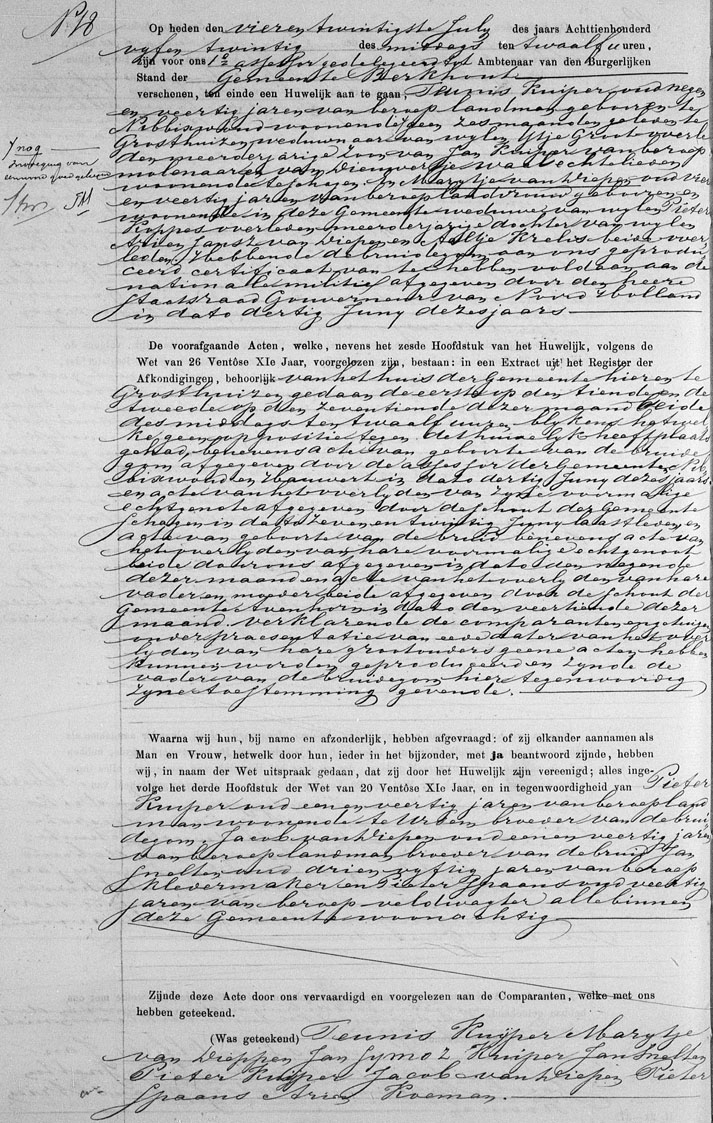 No 18
Op heden den vier en twintigste July des jaars Achttienhonderd
vyf en twintig des middags ten twaalf uuren,
zijn voor ons 1e assessor gedelegeerd tot Ambtenaar van den Burgerlijken
Stand der Gemeente Berkhout
verschenen, ten einde een Huwelijk aan te gaan Teunis Kuiper, oud negen
en veertig jaren van beroep landman geboren te
Nibbixwoud woonende
Grosthuizen weduwnaar van wylen Ytje Groot
den meerderjarige zoon van Jan Kuiper van beroep
molenaar en van echtelieden
woonende te Schagen En Marytje van Diepen oud vier
en veertig jaren van beroep landvrouw geboren en
woonende in deze Gemeente weduwe van wylen Pieter
Koppes overleden meerderjarige dochter van wylen
Arien Jansz van Diepen en Aeltje Krelis beide over
leden, hebbende de bruidegom aan ons geprodu
ceerd certificaat van te hebben voldaan aan de
nationale militie afgegeven door den heere
Staatsraad Gouverneur van Noord Holland
in dato dertig Juny dezes jaars
nog
De voorafgaande Acten, welke, nevens het zesde Hoofdstuk van het Huwelijk, volgens de
Wet van 26 Ventôse XIe Jaar, voorgelezen zijn, bestaan: in een Extract uit het Register der
Afkondigingen, behoorlijk van het huis der Gemeente hier en te
Grosthuizen gedaan de eerste op den tiende en de
tweede op den zeventiende dezer maand beide
des middags ten twaalf uuren blykens hetwel
ke geen oppositie tegen dit huwelyk heeft plaats
gehad, benevens acte van geboorte van de bruide
gom afgegeven door de assessor der Gemeente Nib
bixwoud en Hauwert in dato dertig Juny dezes jaars
en acte van het overlyden van zyne voormalige
echtgenote afgegeven door de schout der Gemeente
Schagen in dato zeven en twintig Juny laastleden en
acte van geboorte van de bruid benevens acte van
het overlyden van hare voormalige echtgenoot
beide door ons afgegeven in dato den negende
dezer maand en acte van het overlyden van hare
vader en moeder beide afgegeven door de schout der
Gemeente Avenhorn in dato den veertiende dezer
maand. verklarende de comparanten en getuigen
onder praesentatie van eede dat er van het over
lyden van hare grootouders geene acten hebben
kunnen worden geproduceerd en zynde de
vader van de bruidegom hier tegenwoordig
zyne toestemming gevende.
Waarna wij hun, bij name en afzonderlijk, hebben afgevraagd: of zij elkander aannamen als
Man en Vrouw, hetwelk door hun, ieder in het bijzonder, met ja beantwoord zijnde, hebben
wij, in naam der Wet uitspraak gedaan, dat zij door het Huwelijk zijn vereenigd; alles inge-
volge het derde Hoofdstuk der Wet van 20 Ventôse XIe Jaar, en in tegenwoordigheid van Pieter
Kuiper oud een en veertig jaren van beroep land
man woonende te Ursem broeder van de brui
degom, Jacob van Diepen oud een en veertig jaren
van beroep landman broeder van de bruid Jan
Snelten oud drie en vyftig jaren van beroep
kledermaker en Pieter Spaans oud veertig
jaren van beroep veldwagter alle binnen
deze Gemeente woonachtig
Zijnde deze Acte door ons vervaardigd en voorgelezen aan de Comparanten, welke met ons
hebben geteekend.
(Was geteekend) Teunis Kuijper Marytje
van Dieppen Jan Symoz Kuiper Jan Snelten
Pieter Kuijper Jacob van Diepen Pieter
Spaans Arien Koeman.